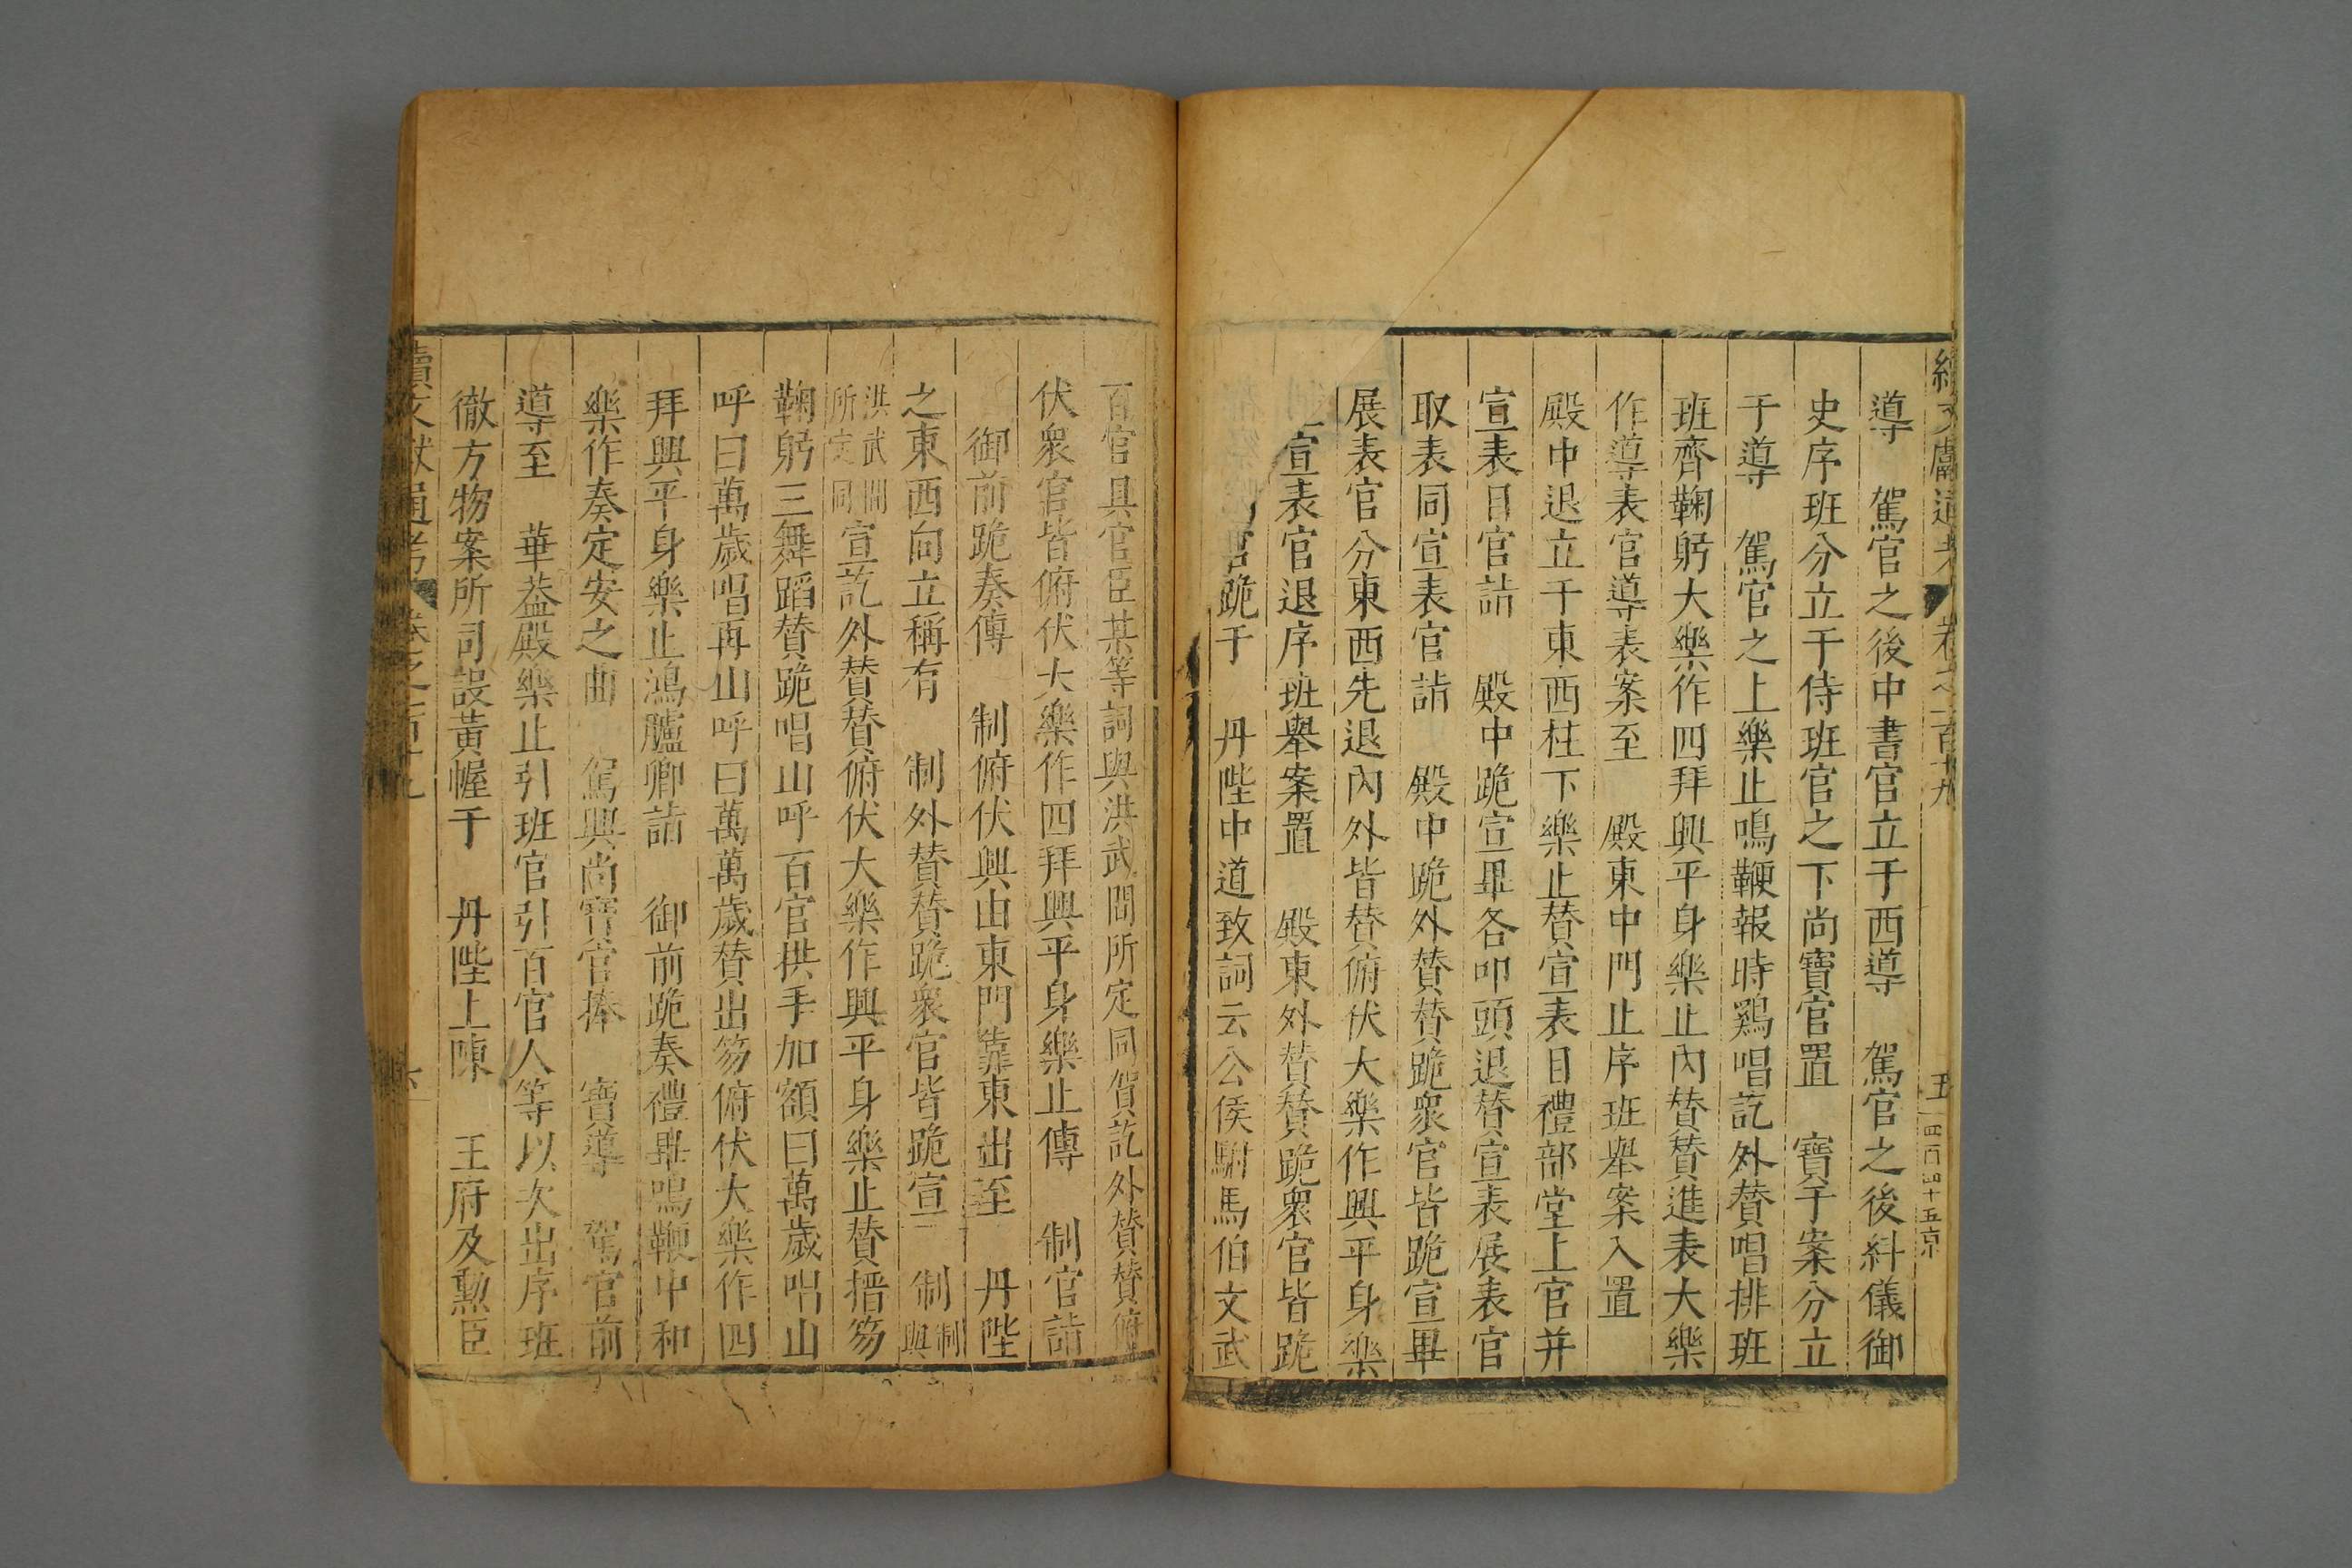 文獻通考 卷之一百十九 五
導 駕官之後中書官立于西導 駕官之後糾儀御
史序班分立于侍班官之下尚寶官置 寶于案分立
于導 駕官之上樂止鳴鞭報時鷄唱訖外贊唱排班
班齊鞠躬大樂作四拜興平身樂止內贊贊進表大樂
作導表官導表案至 殿東中門止序班舉案入置
殿中退立于東西柱下樂止贊宣表目禮部堂上官并
宣表目官詣 殿中跪宣畢各叩頭退贊宣表展表官
取表同宣表官詣 殿中跪外贊贊跪衆官皆跪宣畢
展表官分東西先退內外皆贊俯伏大樂作興平身樂
宣表官退序班舉案置 殿東外贊贊跪衆官皆跪
跪于 丹陛中道致詞云公侯駙馬伯文武
百官具官臣某等詞與洪武間所定同賀訖外贊贊俯
伏衆官皆俯伏大樂作四拜興平身樂止傳 制官詣
御前跪奏傳 制俯伏興由東門靠東出至 丹陛
之東西向立稱有 制外贊贊跪衆官皆跪宣 制制與
洪武間所定同宣訖外贊贊俯伏大樂作興平身樂止贊搢笏
鞠躬三舞蹈贊跪唱山呼百官拱手加額曰萬歲唱山
呼曰萬歲唱再山呼曰萬萬歲贊出笏俯伏大樂作四
拜興平身樂止鴻臚卿詣 御前跪奏禮畢鳴鞭中和
樂作奏定安之曲 駕興尚寶官捧 寶導 駕官前
導至 華葢殿樂止引班官引百官人等以次出序班
徹方物案所司設黃幄于 丹陛上陳 王府及勲臣
續文獻通考 卷之一百十九 六